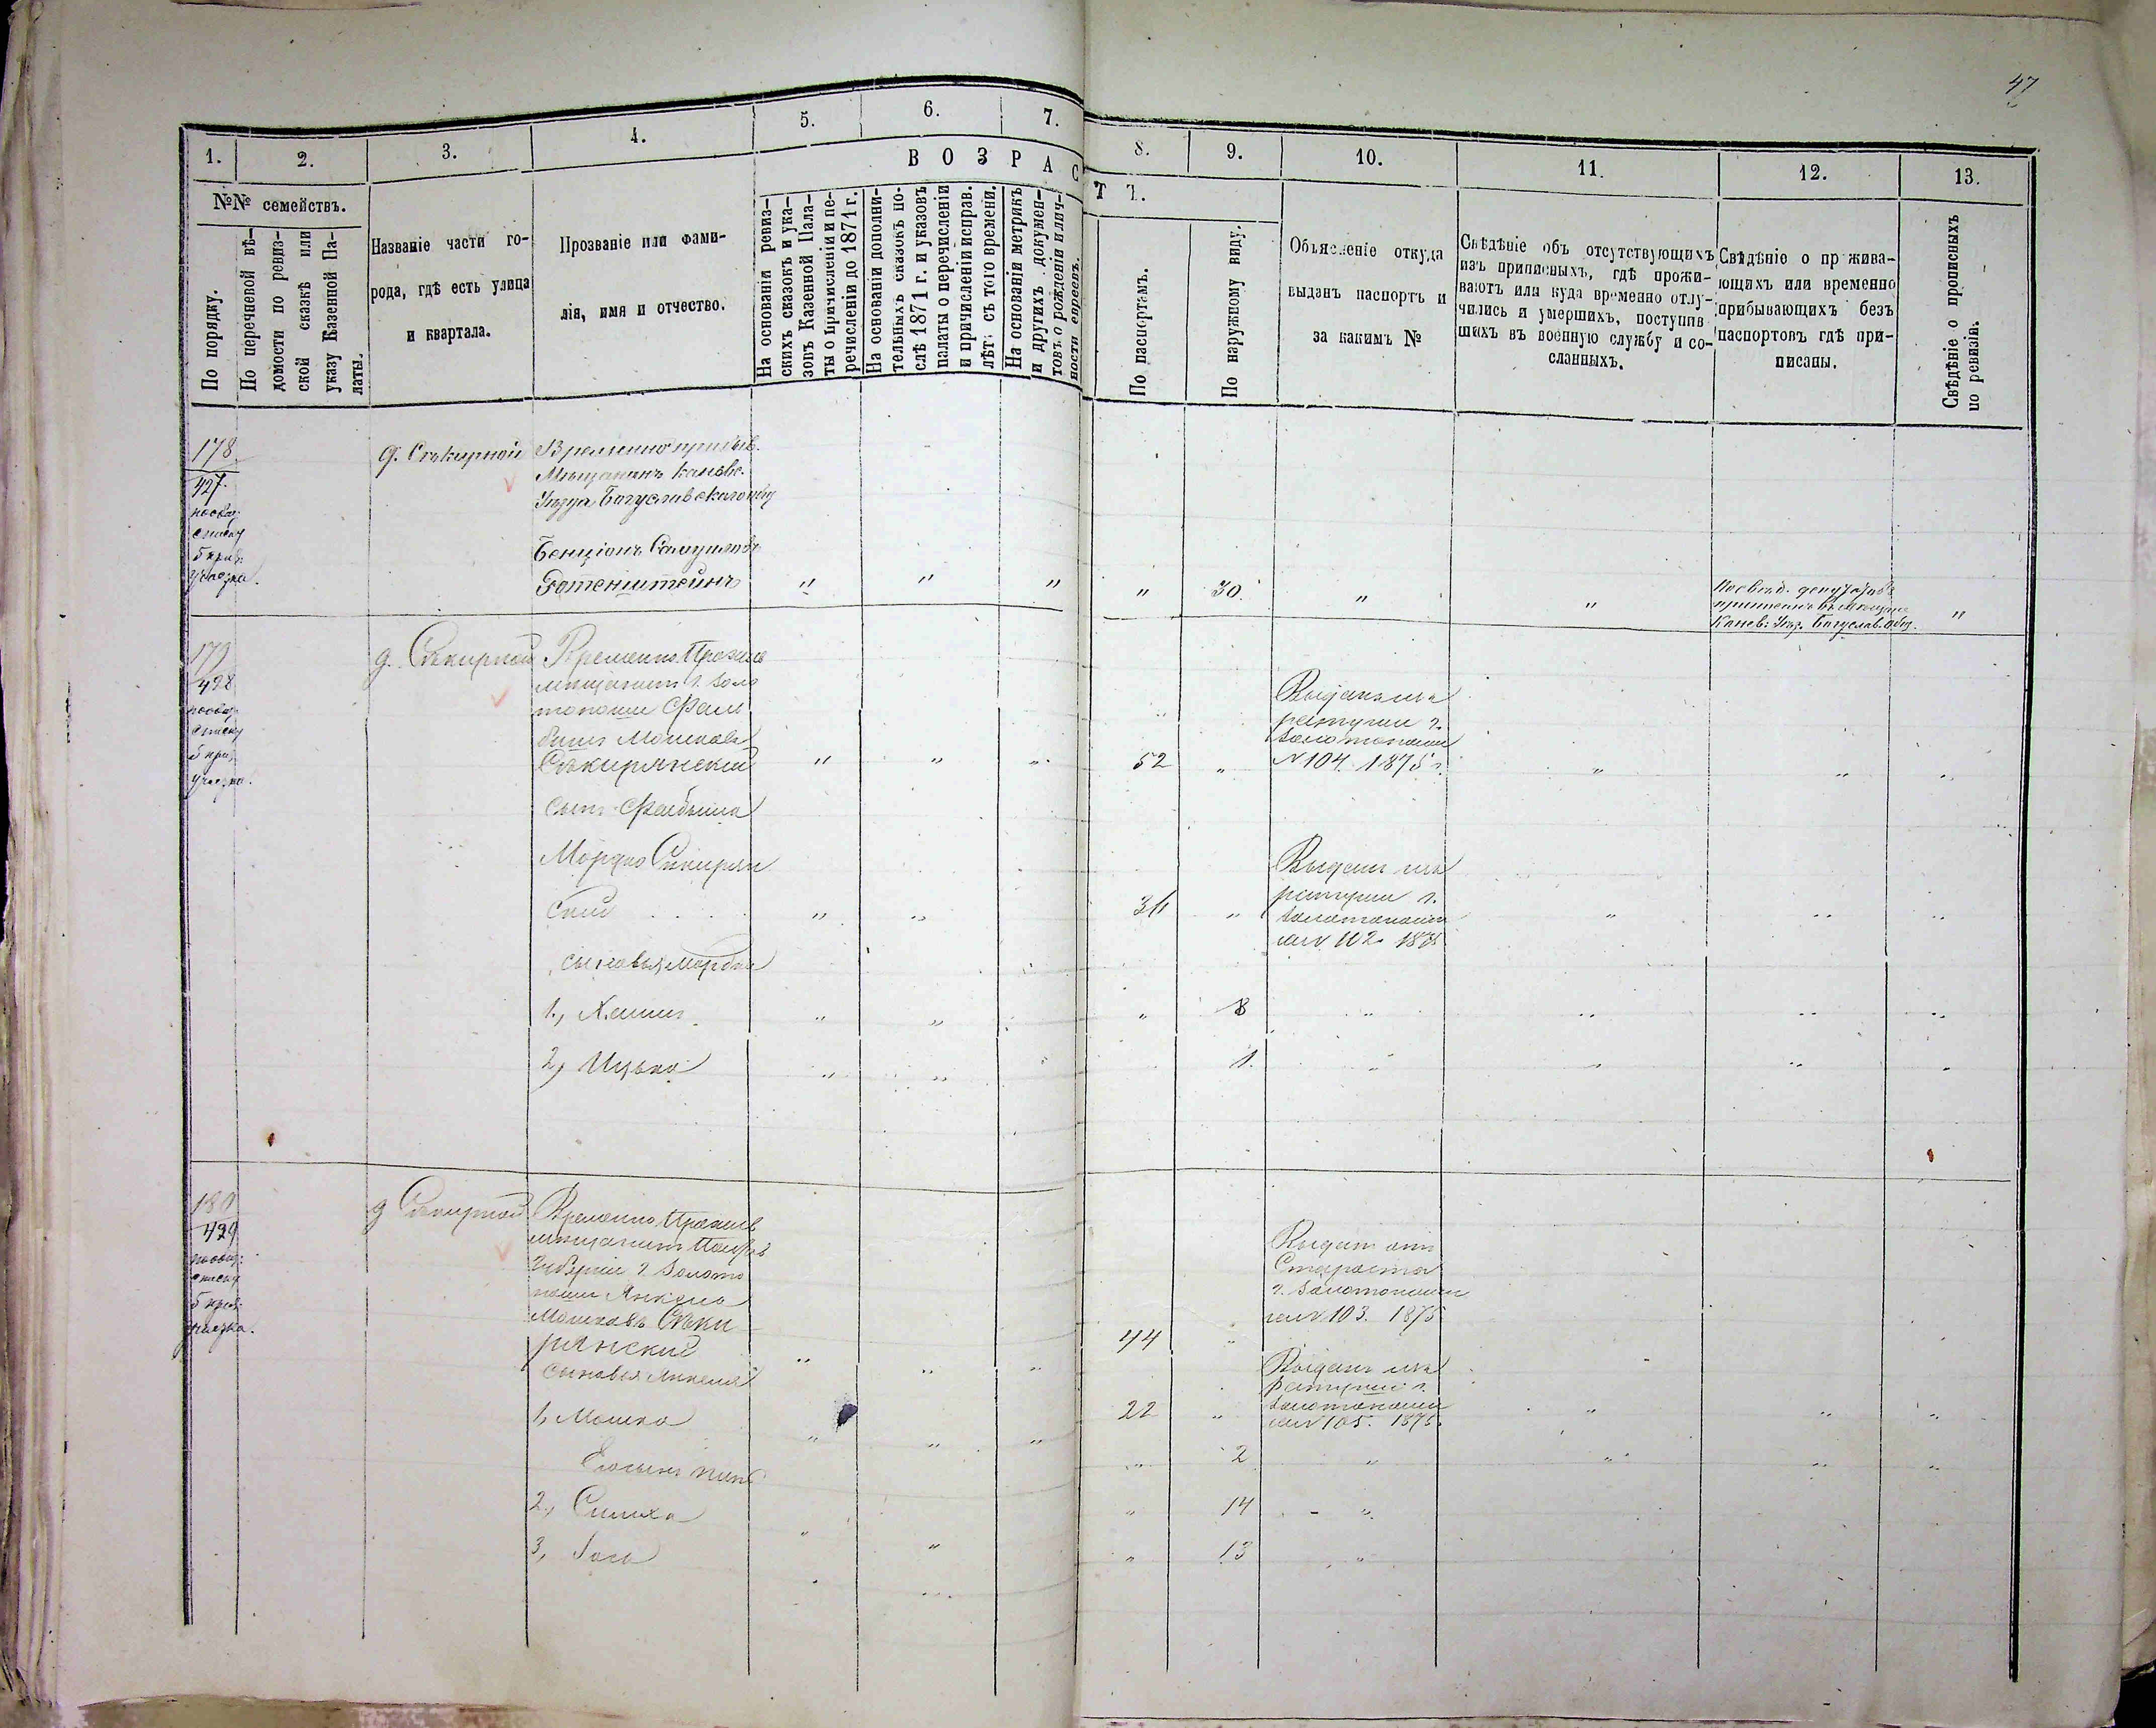 47
1.
2.
3.
4.
5.
6.
7.
8.
9.
10.
11.
12.
13.
ВОЗРАС
ТЪ.
№№ семействъ.
По порядку.
По перечневой вѣ-
домости по ревиз-
ской сказкѣ или
указу Казенной Па-
латы.
Названіе части го-
рода, гдѣ есть улица
и квартала.
Прозваніе или фами-
лія, имя и отчество.
На основаніи ревиз-
скихъ сказокъ и ука-
зовъ Казенной Пала-
ты о причисленіи и пе-
речисленіи до 1871 г.
На основаніи дополни-
тельныхъ сказокъ по-
слѣ 1871 г. и указовъ
палаты о перечисленіи
и причисленіи исправ.
лѣт: съ того времени.
На основаніи метрикъ
и другихъ докумен-
товъ о рожденіи и лич-
ности евреевъ.
По паспортамъ.
По наружному виду.
Объясненіе откуда
выданъ паспортъ и
за какимъ №
Свѣдѣніе объ отсутствующихъ
изъ приписныхъ, гдѣ прожи-
ваютъ или куда временно отлу-
чились и умершихъ, поступив
шихъ въ военную службу и со-
сланныхъ.
Свѣдѣніе о прожива-
ющихъ или временно
прибывающихъ безъ
паспортовъ гдѣ при-
писаны.
Свѣдѣніе о прописныхъ
по ревизіи.
178
427
списку
5 приз:
участка.
д. Секирной
Временно прибыв.
Мѣщанинъ Каневс.
Уѣзда Богуславскаго общ
Бенціонъ
Ротенштейнъ " " " " 30. " " "
припис
Канев: Уѣз. Богуслав. общ.
179
428
списку
5 приз:
участка.
д. Секирной
Временно Прожив
мѣщанинъ г. Золо
тоноши Файш
Мошковъ
Секирянскій " " " 52 " " " "
Выданъ изъ
ратуши г.
Золотоноши
№ 104. 1875 г.
сынъ
Мордко Секирян
скій " " 36 " " " "
Выданъ изъ
ратуши г.
Золотоноши
за № 112. 1875
сыновья Мордка
1., Хаимъ " " " 8 " " " "
2., Ицько " " 1. " " " "
180
429
списку
5 приз:
участка.
д Секирной
Временно Прожив
мѣщанинъ Полтав
Губерніи г. Золото
ноши Янкель
Мошковъ Секи
рянскій " " " 44 "
Выданъ отъ
Старосты
г. Золотоноши
за № 103. 1875
сыновья Янкеля
1, Мошко " " " 22 " " " "
Выданъ изъ
Ратуши г.
Золотоноши
за № 105. 1875.
Его сынъ " 2 " " " "
2., Симха " " " 14 "
3, " " 13 "